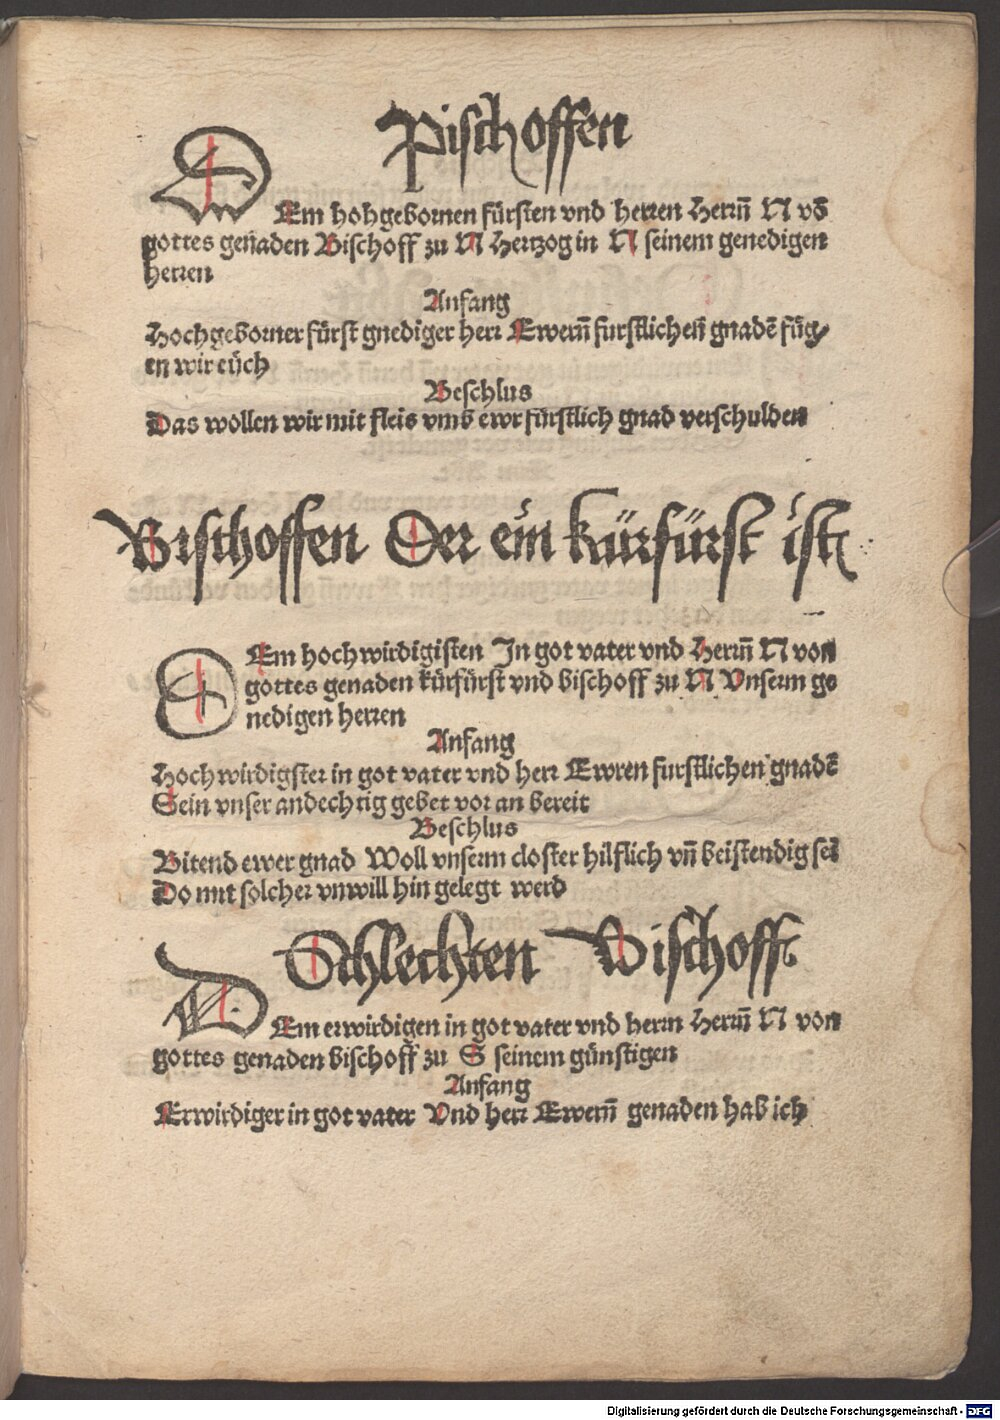 Pischoffen
DEm hohgebornen fürsten vnd herren Herrñ N võ
gottes geñaden Bischoff zu N Hertzog in N seinem genedigen
herren
Anfang
Hochgeborner fürst gnediger herr Ewerñ furstlicheñ gnadẽ füg⸗
en wir eüch
Beschlus
Das wollen wir mit fleis vmb ewr fürstlich gnad verschulden
Bischoffen Der ein kürfürst ist
DEm hochwirdigisten In got vater vnd Herrñ N von
gottes genaden kürfürst vnd bischoff zu N Vnserm ge
nedigen herren
Anfang
Hochwirdigster in got vater vnd herr Ewren furstlichen gnadẽ
Sein vnser andechtig gebet vor an bereit
Beschlus
Bitend ewer gnad Woll vnserm closter hilflich vñ beistendig sei
Do mit solcher vnwill hin gelegt werd
Schlechten Bischoff
DEm erwirdigen in got vater vnd herrn Herrñ N von
gottes genaden bischoff zu S seinem günstigen
Anfang
Erwirdiger in got vater Vnd herr Ewerñ genaden hab ich
Digitalisierung gefördert durch die Deutsche Forschungsgemeinschaft - DFG